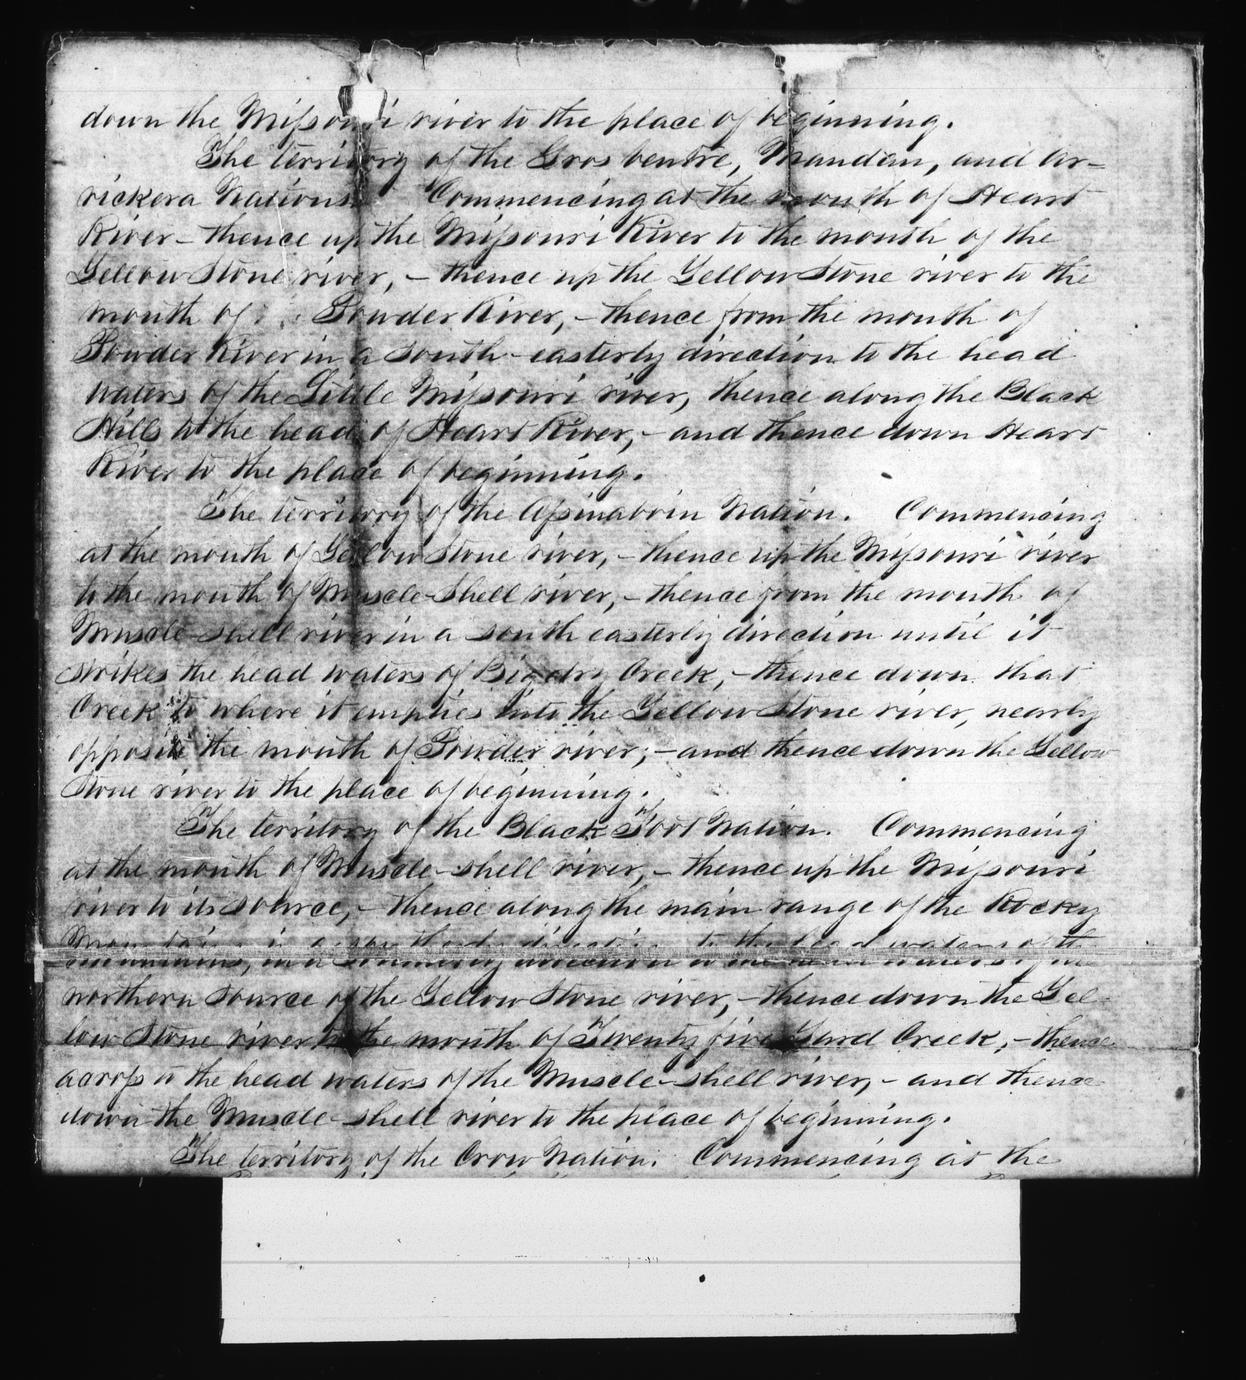 down the Missouri river to the place of beginning.
The territory of the Gros ventre, Mandan, and Ar-
rickera Nations. Commencing at the mouth of Heart
River - thence up the Missouri River to the mouth of the
Yellow Stone river, - thence up the Yellow Stone river to the
mouth of Powder River, - thence from the mouth of
Powder River in a south-easterly direction to the head
waters of the Little Missouri river, thence along the Black
Hills to the head of Heart River, - and thence down Heart
River to the place of beginning.
The territory of the Assinaboin Nation. Commencing
at the mouth of Yellow Stone river, - thence up the Missouri river
to the mouth of Muscle-shell river, - thence from the mouth of
Muscle-shell river in a south easterly direction until it
strikes the head waters of Big dry Creek, - thence down that
Creek to where it empties into the Yellow Stone river, nearly
opposite the mouth of Powder river, - and thence down the Yellow
Stone river to the place of beginning.
The territory of the Black Foot Nation. Commencing
at the mouth of Muscle-shell river, - thence up the Missouri
river to its source, - thence along the main range of the Rocky
Mountains, in a southerly direction to the head waters of the
northern source of the Yellow Stone river, - thence down the Yel-
low Stone river to the mouth of Twenty five Yard Creek, - thence
across to the head waters of the Muscle-shell river, - and thence
down the Muscle-shell river to the place of beginning.
The territory of the Crow Nation. Commencing at the